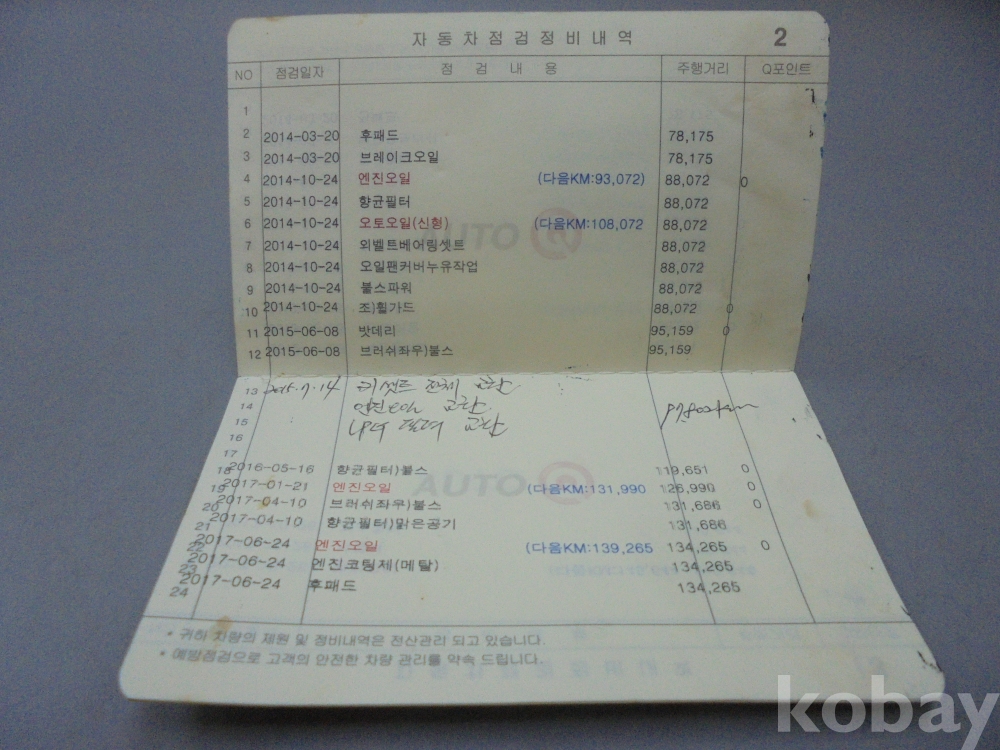 자동차점검정비내역 2
NO 점검일자 점 검 내 용 주행거리 Q포인트
1
2 2014-03-20 후패드 78,175
3 2014-03-20 브레이크오일 78,175
4 2014-10-24 엔진오일 (다음KM:93,072) 88,072 0
5 2014-10-24 향균필터 88,072
6 2014-10-24 오토오일(신형) (다음KM:108,072 88,072
AUTO Q
7 2014-10-24 외벨트베어링셋트 88,072
8 2014-10-24 오일팬커버누유작업 88,072
9 2014-10-24 불스파워 88,072
10 2014-10-24 조)휠가드 88,072 0
11 2015-06-08 밧데리 95,159 0
12 2015-06-08 브러쉬좌우)불스 95,159
13 2015.7.14 전체 교환
14 엔진오일 교환
15 교환
16
17
18 2016-05-16 향균필터)불스 119,651 0
19 2017-01-21 엔진오일 (다음KM:131,990 126,990 0
AUTO Q
20 2017-04-10 브러쉬좌우)불스 131,686 0
21 2017-04-10 향균필터)맑은공기 131,686
22 2017-06-24 엔진오일 (다음KM:139,265 134,265 0
23 2017-06-24 엔진코팅제(메탈) 134,265
24 2017-06-24 후패드 134,265
* 귀하 차량의 제원 및 정비내역은 전산관리 되고 있습니다.
* 예방점검으로 고객의 안전한 차량 관리를 약속 드립니다.
kobay